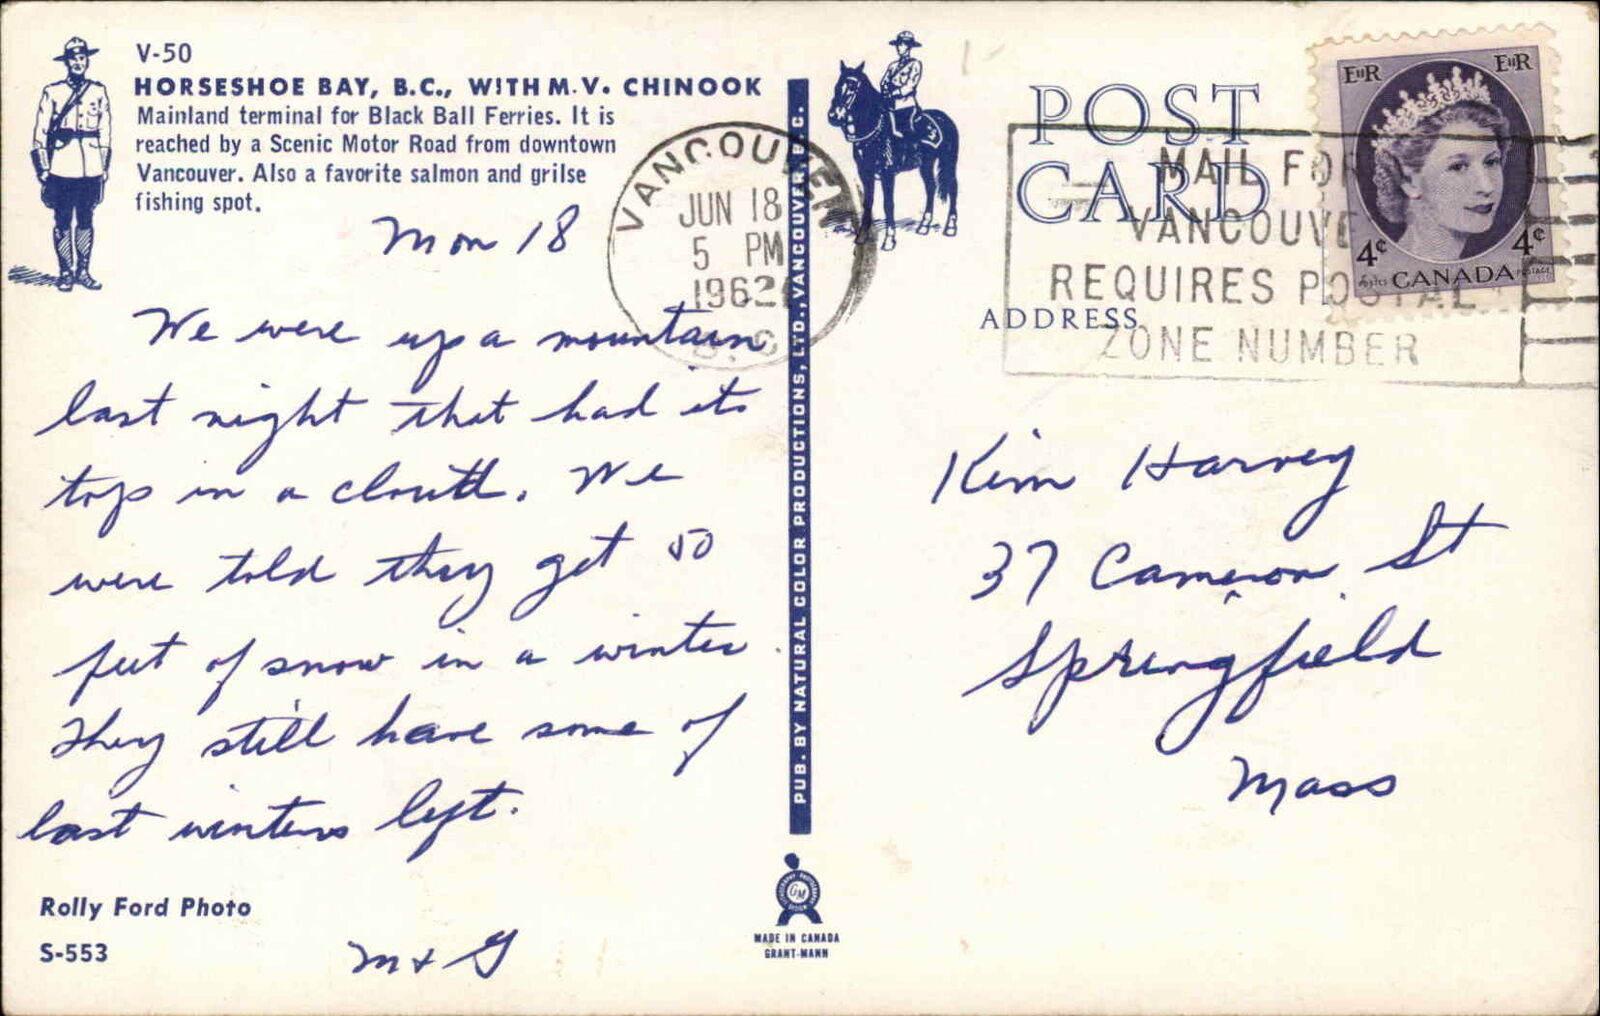 V-50
HORSESHOE BAY, B.C., WITH M.V. CHINOOK
Mainland terminal for Black Ball Ferries. It is
reached by a Scenic Motor Road from downtown
Vancouver. Also a favorite salmon and grilse
fishing spot.
Mon 18
We were up a mountain
last night that had its
top in a cloud. We
were told they get 50
feet of snow in a winter.
They still have some of
last winters left.
M & G
Rolly Ford Photo
S-553
PUB. BY NATURAL COLOR PRODUCTIONS, LTD., VANCOUVER, B.C.
GM
MADE IN CANADA
GRANT-MANN
VANCOUVER
JUN 18
5 PM
1962
B.C.
POST
CARD
ADDRESS
MAIL FOR
VANCOUVE
REQUIRES POSTAL
ZONE NUMBER
EIIR EIIR
4¢ 4¢
POSTES CANADA POSTAGE
Kim Harvey
37 Cameron St
Springfield
Mass